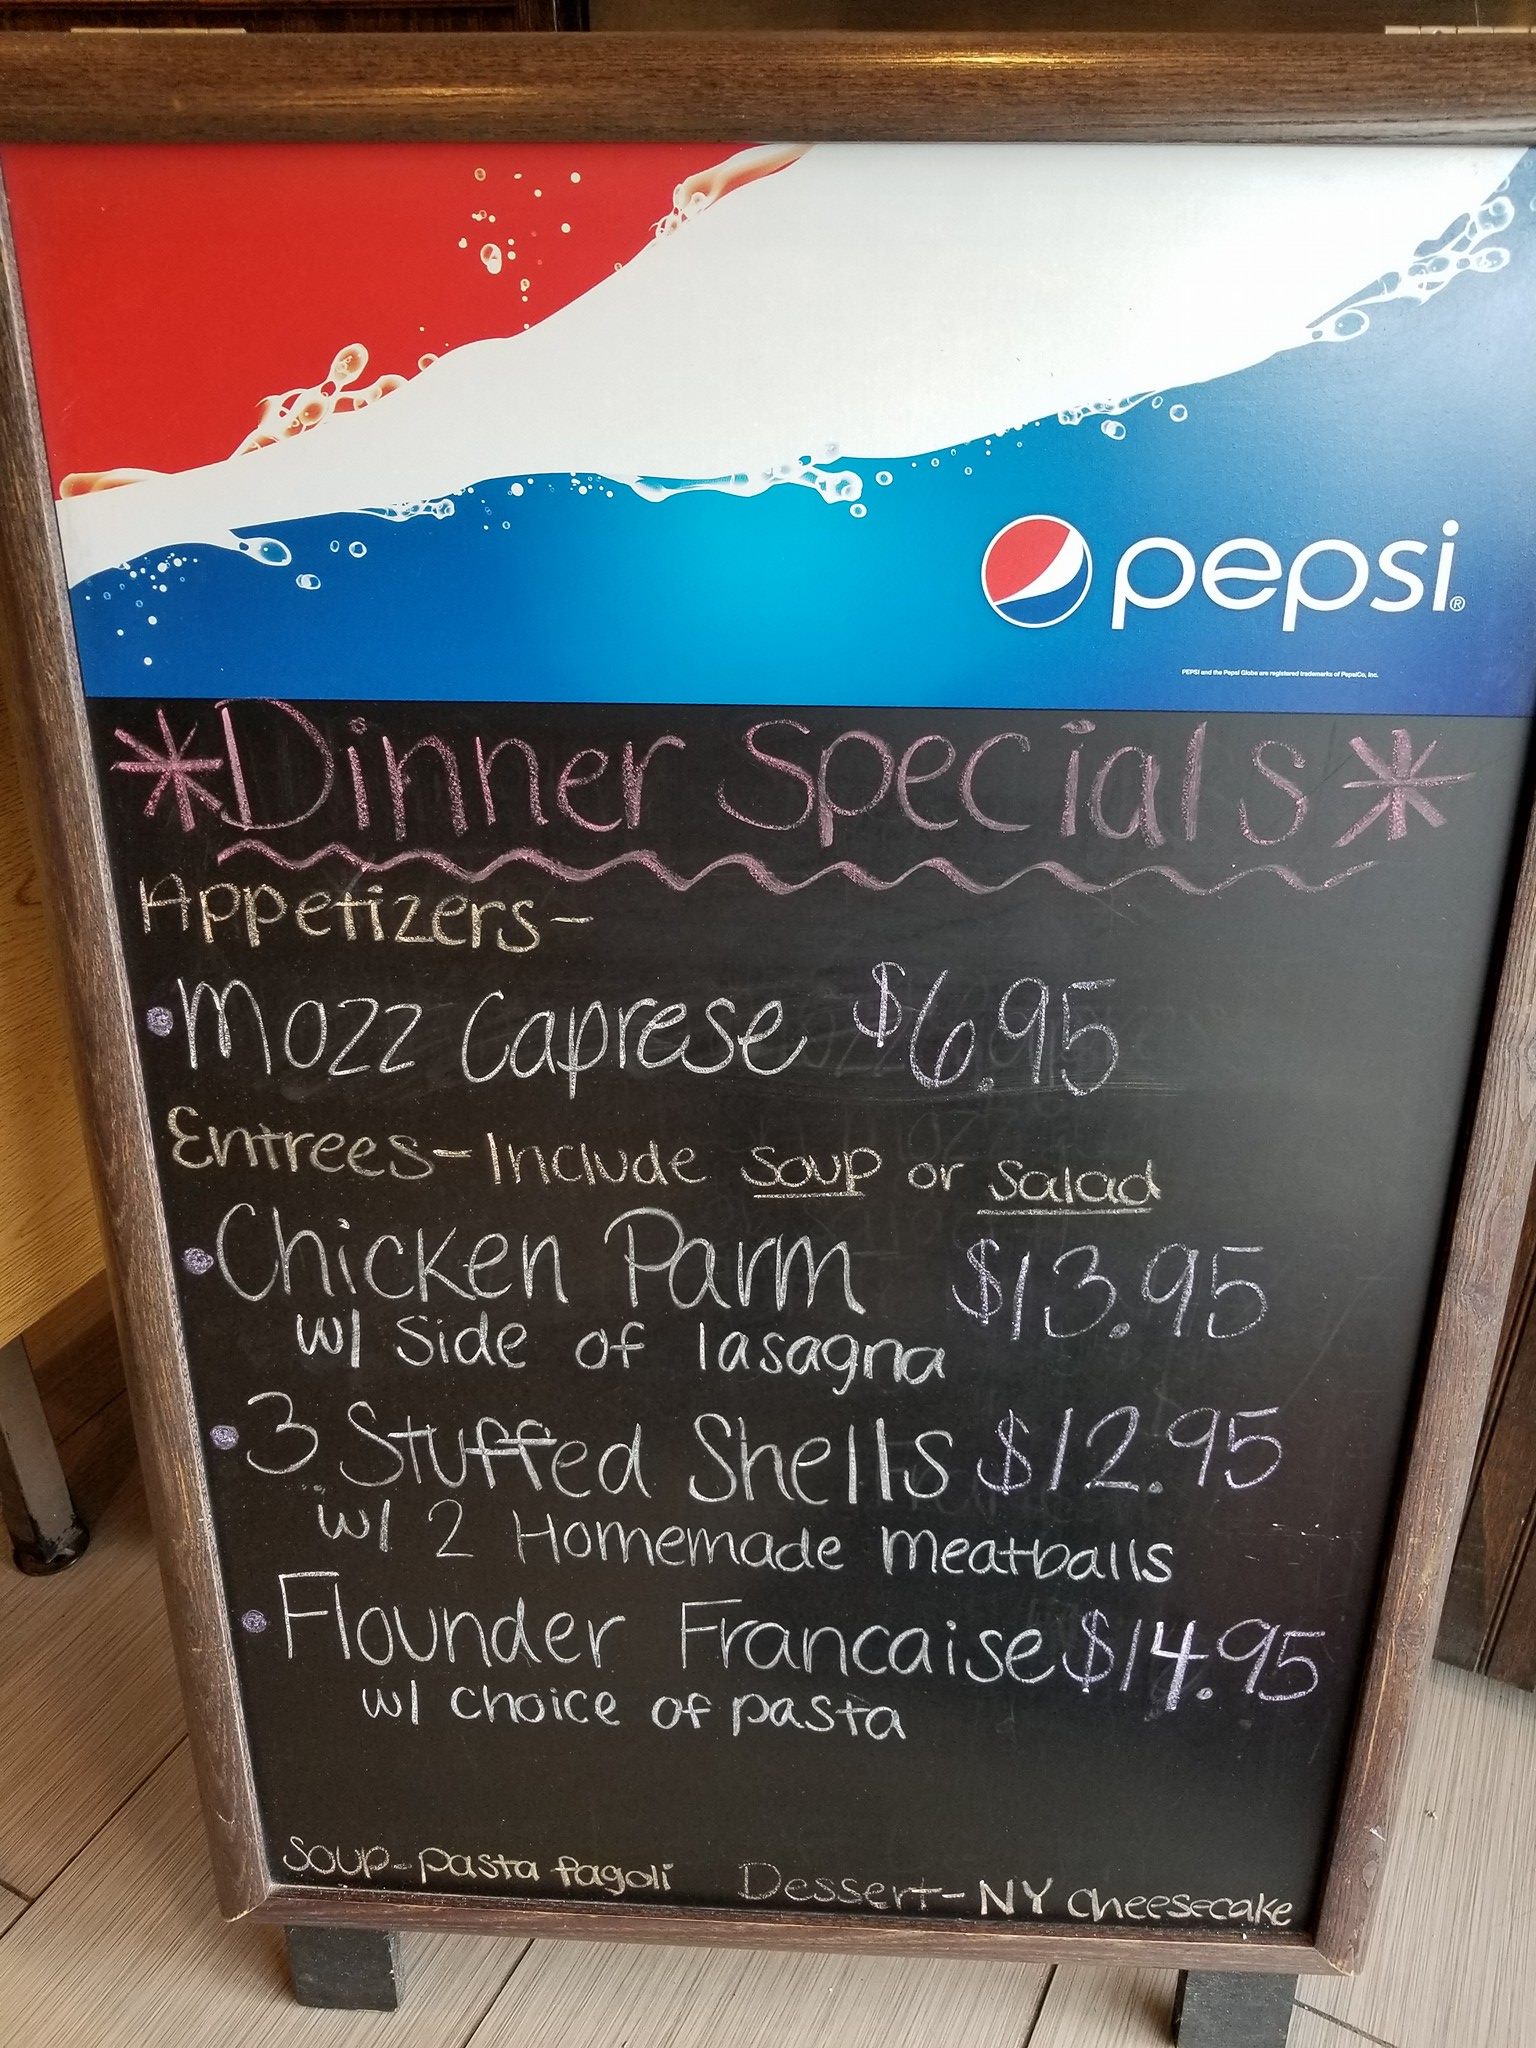 pepsi®
PEPSI and the Pepsi Globe are registered trademarks of PepsiCo, Inc.
*Dinner Specials*
Appetizers-
•Mozz Caprese $6.95
Entrees-Include soup or salad
•Chicken Parm $13.95
w/ side of lasagna
•3 Stuffed Shells $12.95
w/ 2 Homemade meatballs
•Flounder Francaise $14.95
w/ choice of pasta
Soup-pasta fagoli Dessert-NY cheesecake